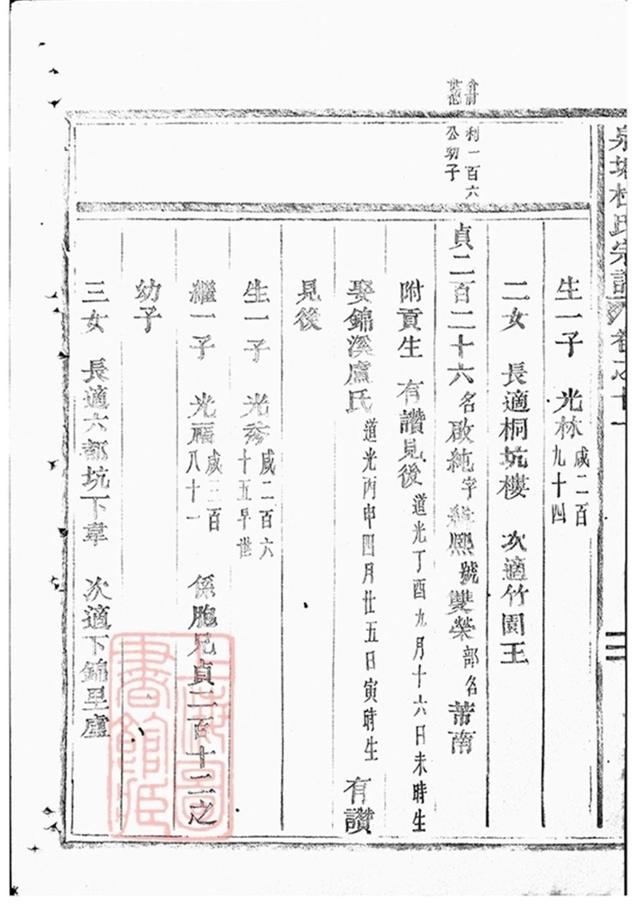 杜氏宗譜 卷之十一
生一子 光林 咸二百九十四
二女 長適桐坑樓 次適竹園王
利一百六公幼子
貞二百二十六 名啟純 字 熙 號雙榮 部名 蒂南
附貢生 有讚見後 道光丁酉九月十六日未時生
娶錦溪盧氏 道光丙申四月廿五日寅時生 有讚
見後
生一子 光秀 咸二百六十五早世
繼一子 光福 咸三百八十一 係胞兄貞二百十二之
幼子
三女 長適六都坑下韋 次適下錦里盧
上海圖書館藏